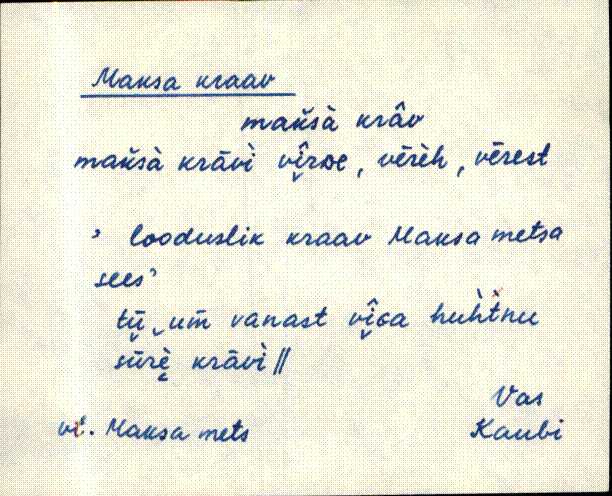 Maksa kraav
mak̆sà krâv
mak̆sà krāvì vî̬rde, vērèh, vērest
, looduslik kraav Maksa metsa
sees’
tǖ̬ um̄ vanast vî̬ɢa huh̀t̀nu
sūrè̬ krāvì ||
Vas
vt. Maksa mets Kaubi